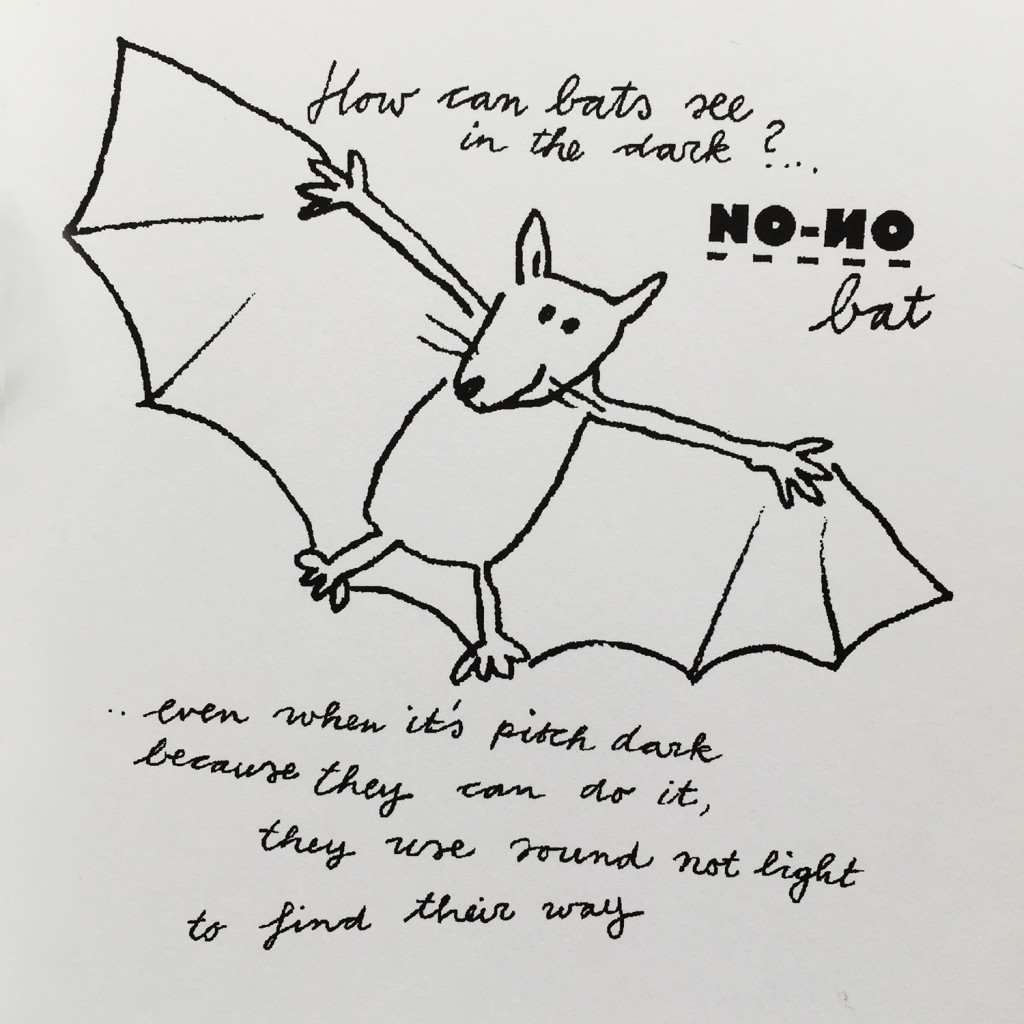 How can bats see
in the dark ?....
NO-NO
bat
.. even when it's pitch dark
because they can do it,
they use sound not light
to find their way